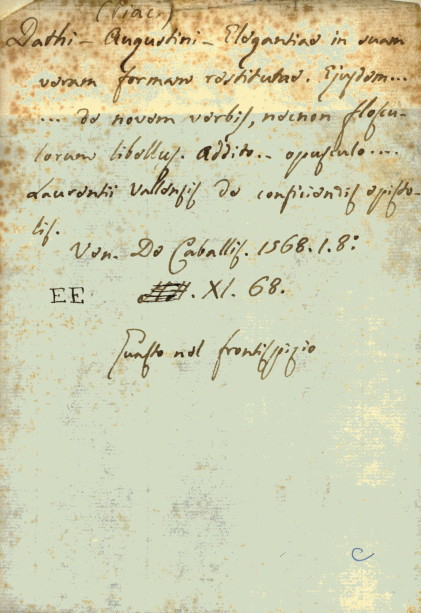 (Piacn)
Dathi - Augustini - Elegantiae in suam
veram formam restitutae. Ejusdem...
... de novem verbis, necnon floscu-
lorum libellus. Addito.. opusculo...
Laurentii Vallensis de conficiendis episto-
lis.
Ven. De Caballis. 1568. 1. 8°
EE . XI. 68.
Guasto nel frontispizio
C